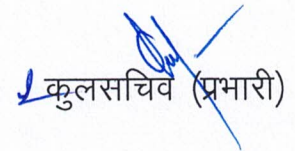 कुलसचिव (प्रभारी)